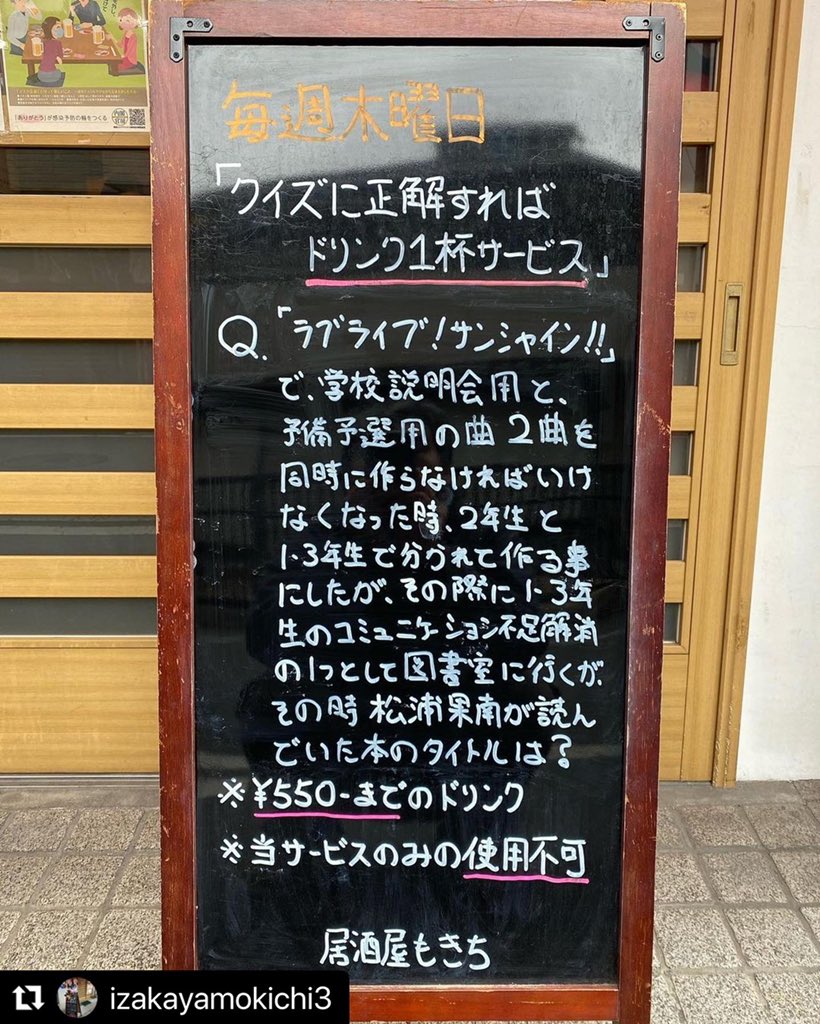 「ありがとう」が感染予防の輪をつくる
毎週木曜日
「クイズに正解すれば
ドリンク1杯サービス」
Q.「ラブライブ!サンシャイン!!」
で、学校説明会用と、
予備予選用の曲2曲を
同時に作らなければいけ
なくなった時、2年生と
1・3年生で分かれて作る事
にしたが、その際に1・3年
生のコミュニケーション不足解消
の1つとして図書室に行くが、
その時松浦果南が読ん
でいた本のタイトルは?
※¥550-までのドリンク
※当サービスのみの使用不可
居酒屋もきち
izakayamokichi3